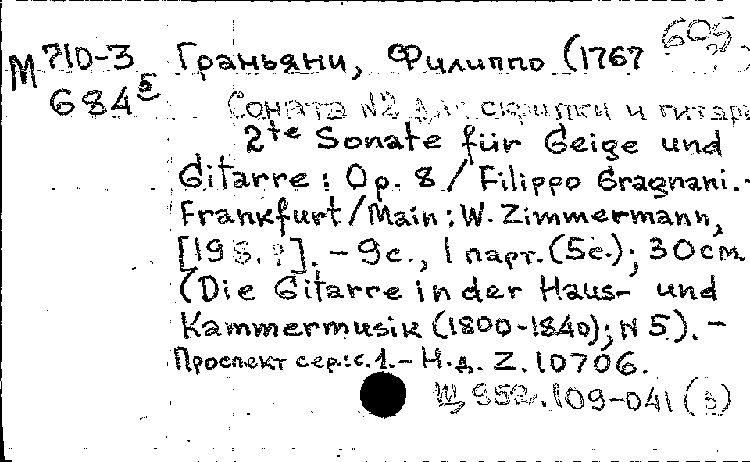 М 710-3
684 5
605
Граньяни, Филиппо (1767
Соната №2 для скрипки и гитары
2te Sonate für Geige und
Gitarre : Op. 8 / Filippo Gragnani. -
Frankfurt/Main : W. Zimmermann,
[198.?]. - 9с., 1 парт. (5с.) ; 30см.
(Die Gitarre in der Haus- und
Kammermusik (1800-1840); N 5). -
Проспект сер.: с. 1. - Н.д. Z. 10706.
Щ 952.109-041 (3)